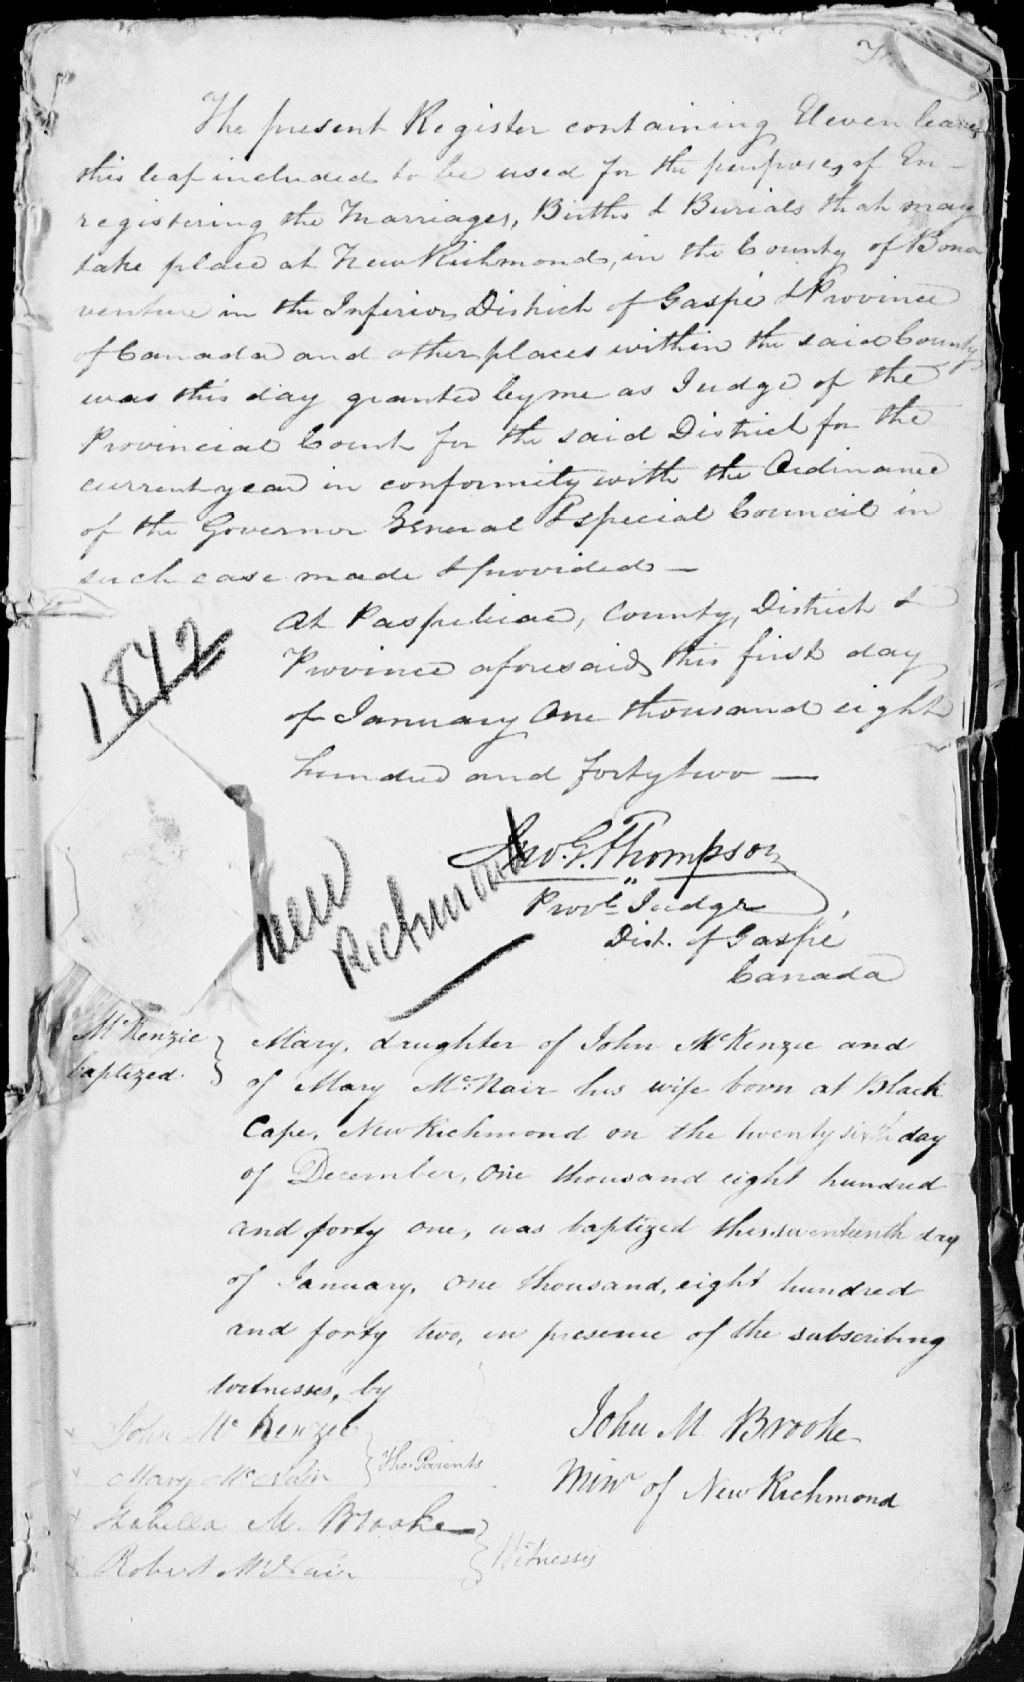 The present Register containing Eleven leaves
this leaf included to be used for the purposes of En-
registering the Marriages, Births & Burials that may
take place at New Richmond, in the County of Bona
venture in the Inferior District of Gaspé & Province
of Canada and other places within the said County
was this day granted by me as Judge of the
Provincial Court for the said District for the
current year in conformity with the Ordinance
of the Governor General & special Council in
such case made & provided —
At Paspebiac, County, District &
Province aforesaid, this first day
of January One thousand eight
hundred and forty two —
1842
Jno. G. Thompson
Provl. Judge
Dist. of Gaspé
Canada
New
Richmond
McKenzie
baptized
Mary, daughter of John McKenzie and
of Mary McNair his wife born at Black
Cape, New Richmond on the twenty sixth day
of December, One thousand eight hundred
and forty one, was baptized the seventeenth day
of January, One thousand, eight hundred
and forty two, in presence of the subscribing
witnesses, by
John McKenzie
Mary McNair
The Parents
Isabella M. Brooke
Robert McNair
Witnesses
John M Brooke
Minr of New Richmond